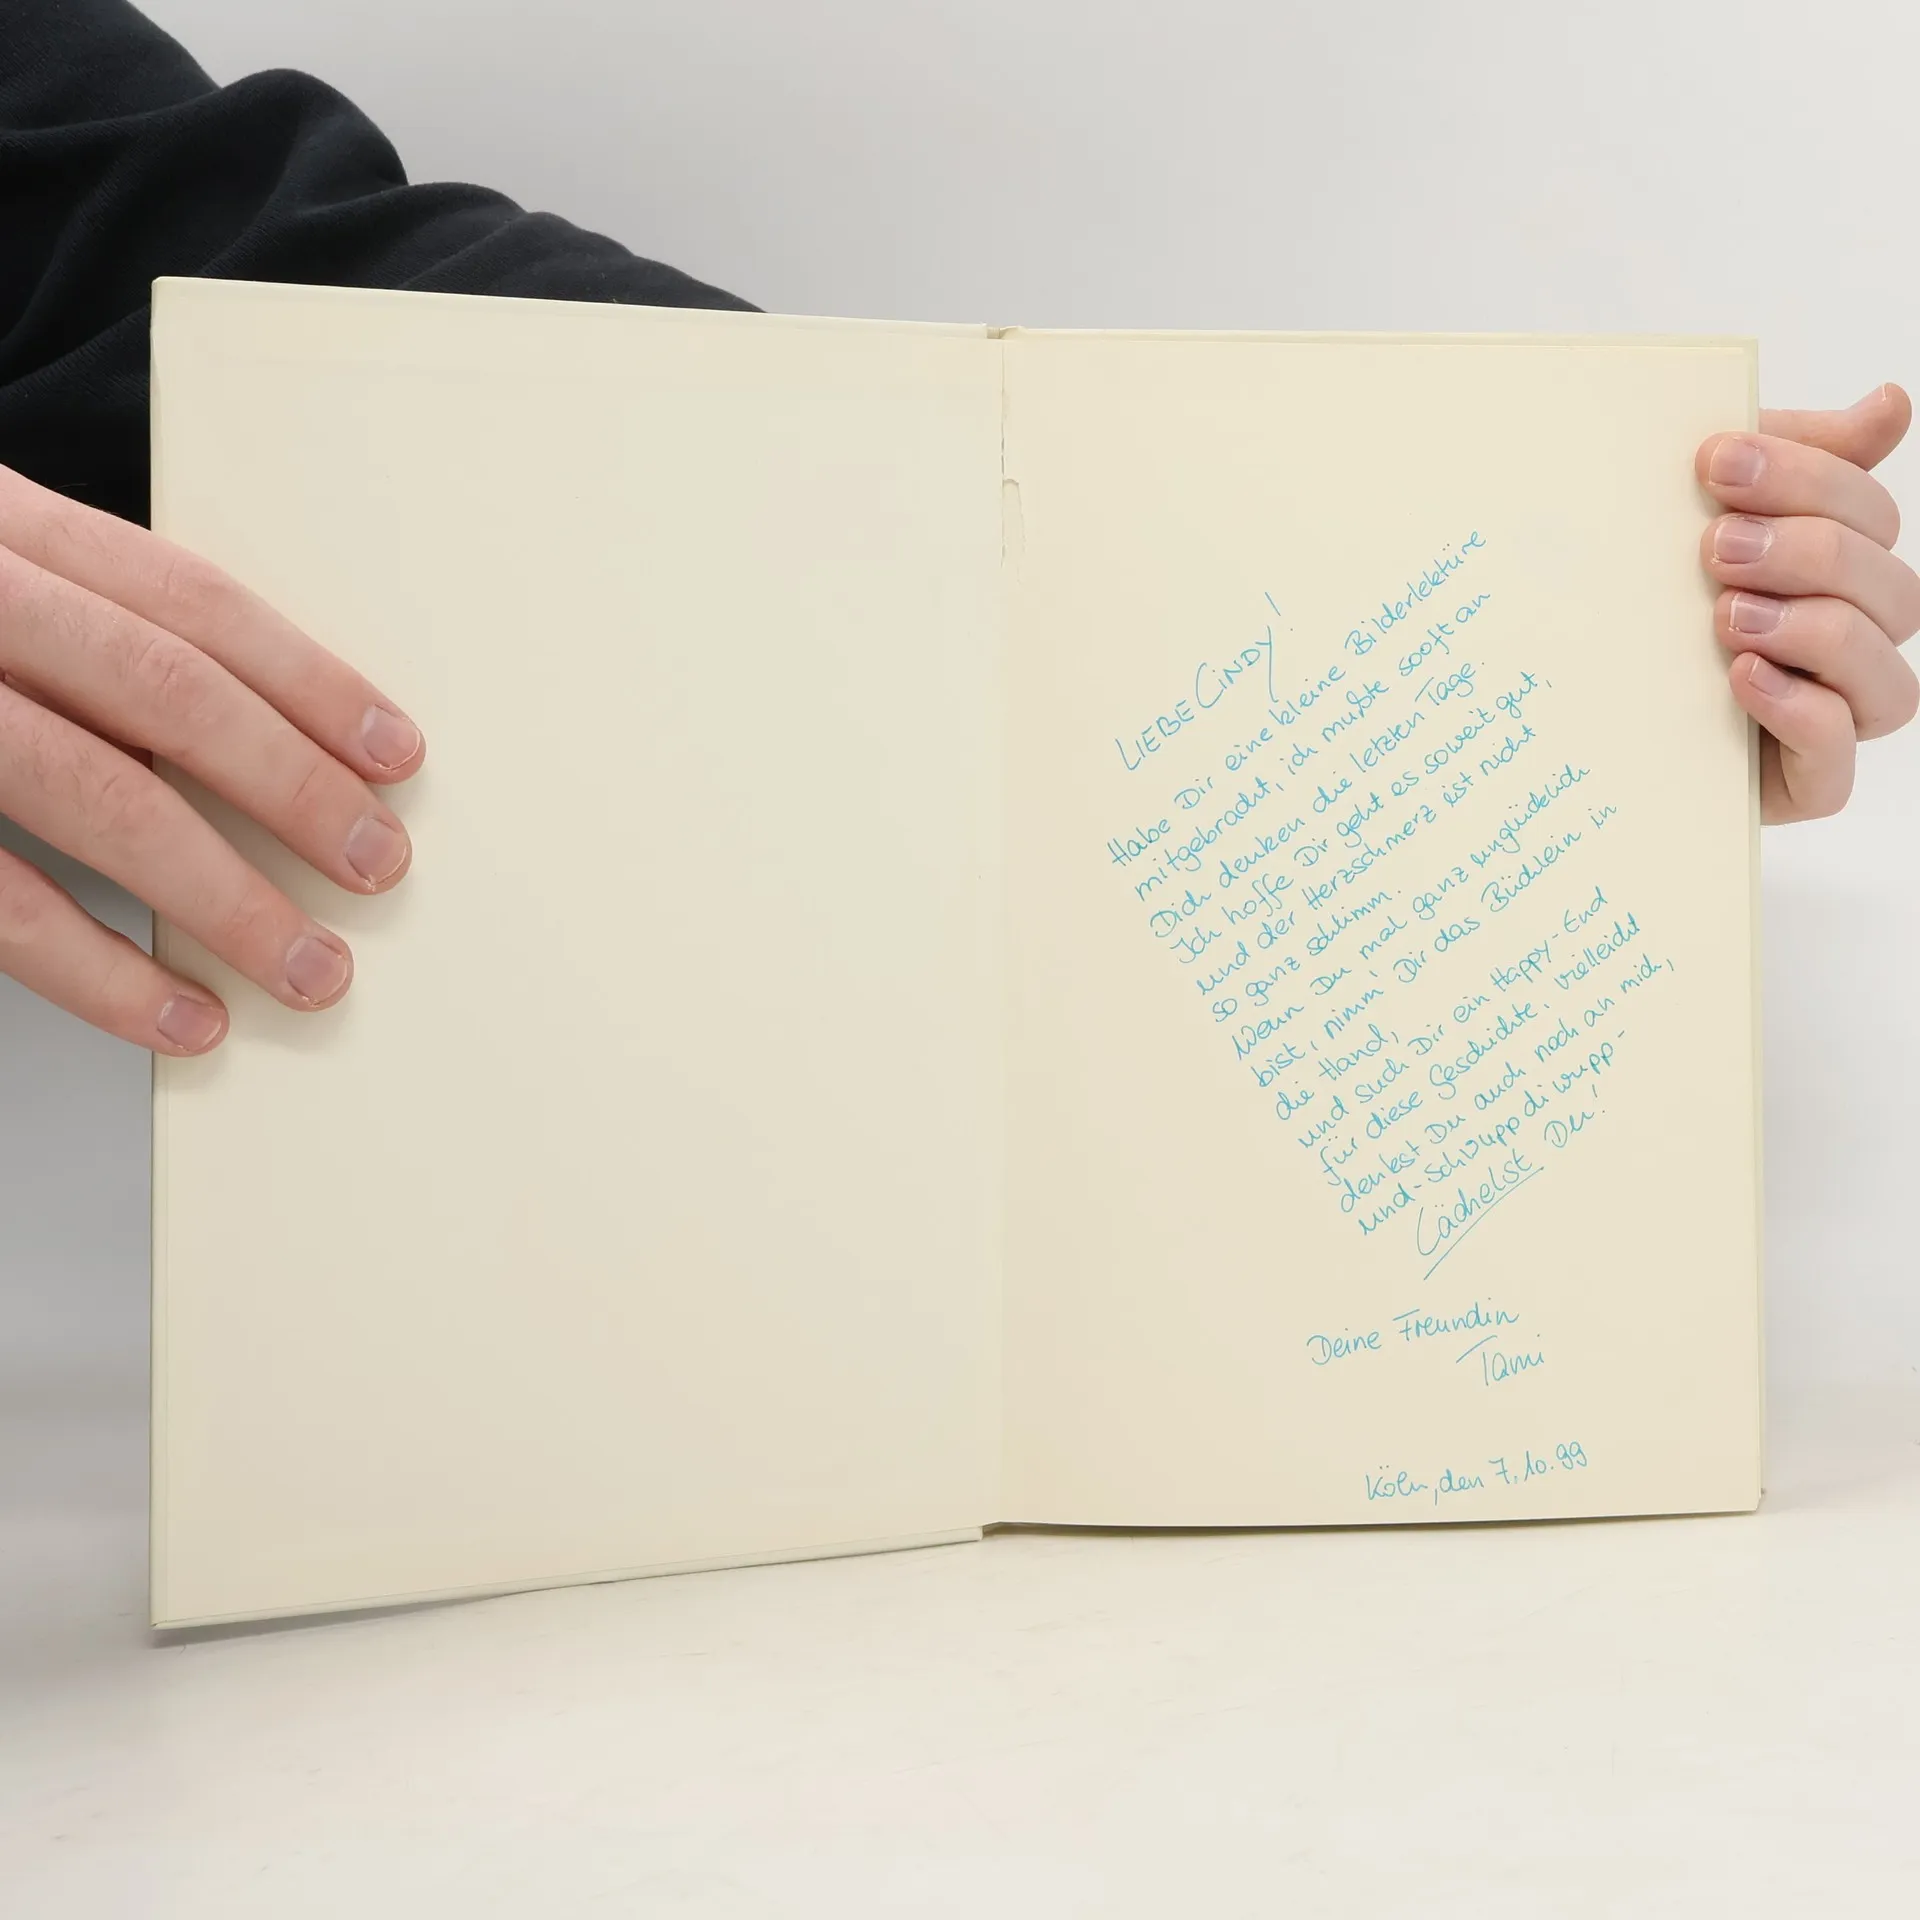 LIEBE CINDY!
Habe Dir eine kleine Bilderlektüre
mitgebracht, ich mußte sooft an
Dich denken die letzten Tage.
Ich hoffe Dir geht es soweit gut,
und der Herzschmerz ist nicht
so ganz schlimm.
Wenn Du mal ganz unglücklich
bist, nimm' Dir das Büchlein in
die Hand,
und such Dir ein Happy-End
für diese Geschichte, vielleicht
denkst Du auch noch an mich,
und-schwuppdiwupp-
Lächelst Du!
Deine Freundin
Tami
Köln, den 7.10.99